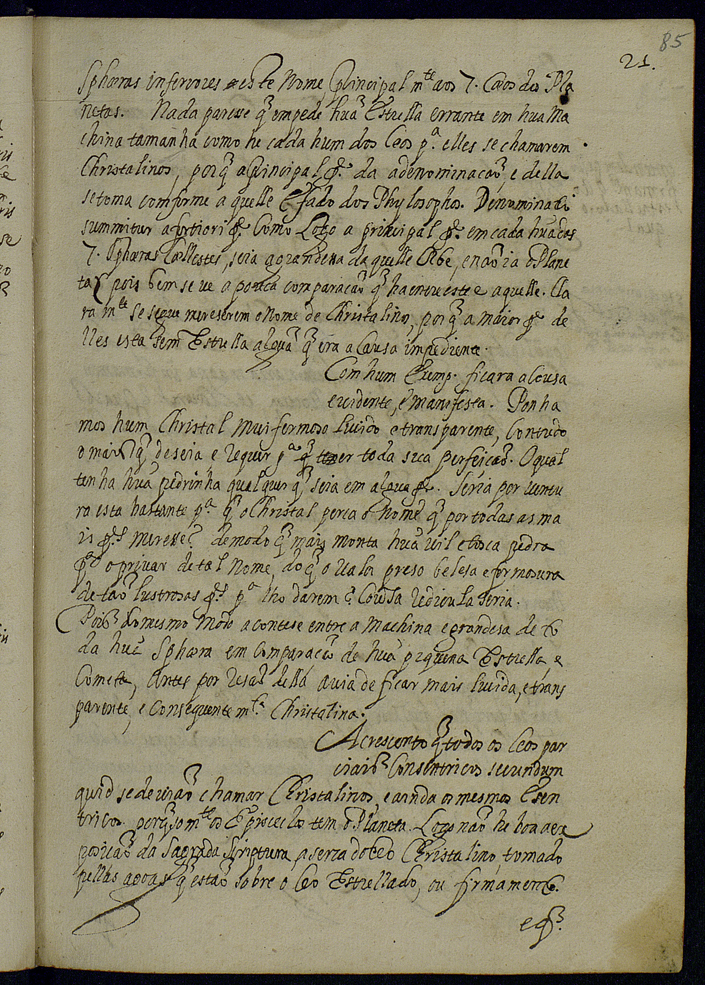 85
21.
Sphæras inferiores este Nome principalmte aos 7. Ceos dos Pla
netas. Nada parece q̃ empede huã Estrella errante em hua Ma
china tamanha como he cada hum dos Ceos pa. elles se chamarem
Christalinos, porq̃ a principal pte. da a denominacaõ, e della
se toma comforme a quelle dos Phylosophos. Denuminatio
summitur a fortiori pte. Como Logo a principal pte. em cada huã das
7. Sphæras Cællestes, seia a grandesa da quelle Orbe, e naõ ia o Plane
ta, pois bem se ve a pouca comparacaõ q̃ ha entre este e aquelle. Cla
ra mte. se segue merecerem o Nome de Christalinos, por q̃ a maior pte. de
lles esta sem Estrella alguã q̃ era a Causa impediente.
Com hum Exemp. ficara a cousa
evidente, e manifesta. Ponha
mos hum Christal mui fermoso Luido e transparente, Com tudo
o mais q̃ deseia e requer pa. q̃ ter toda sua perfeicaõ. O qual
tenha huã pedrinha qualquer q̃ seia em algua pte. Seria por ventu
ra esta bastante pa. q̃ o Christal perca o nome q̃ por todas as ma
is ptes. merece? de modo q̃ mais monta huã vil e tosca pedra
pa. o privar de tal Nome, do q̃ o valo preso belesa e formosura
de taõ lustrosas ptes. pa. lho darem? Cousa rediculа seria.
Pois do mesmo modo acontese entre a Machina e grandesa de to
da huã Sphæra em Comparacaõ de huã pequena Estrella e
Cometa, Antes por resaõ della avia de ficar mais luida, e trans
parente, e Conseguentemte. Christalina.
Acrescento q̃ todos os Ceos par
ciais Consentricos secundum
quid se deviaõ chamar Christalinos, e ainda os mesmos Esen
tricos. porq̃ somte. os Epiceclos tem o Planeta. Logo naõ he boa a ex
posicaõ da Sagrada Scriptura, a serca do Ceo Christalino, tomado
pellas agoas q̃ estaõ sobre o Ceo Estrellado, ou firmamento.